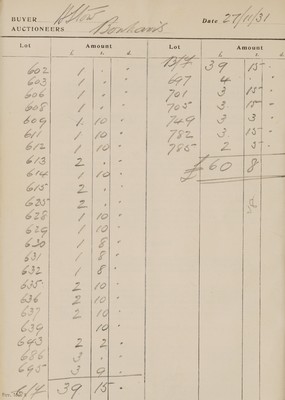 BUYER
AUCTIONEERS Bonhams
Date 27/11/31
Lot Amount
£ s. d.
602 1 . .
603 1 . .
606 1 . .
608 1 . .
609 1 10 .
611 1 10 .
612 1 10 .
613 2 . .
614 1 10 .
615 2 . .
625 2 . .
628 1 10 .
629 1 10 .
630 1 8 .
631 1 8 .
632 1 8 .
635 2 10 .
636 2 10 .
637 2 10 .
639 10 .
643 2 2 .
686 3 . .
695 3 9 .
C/f 39 15 .
Lot Amount
£ s. d.
B/f 39 15 .
697 4 . .
701 3 15 .
705 3 15 .
749 3 3 .
782 3 15 .
785 2 5 .
£60 8 .